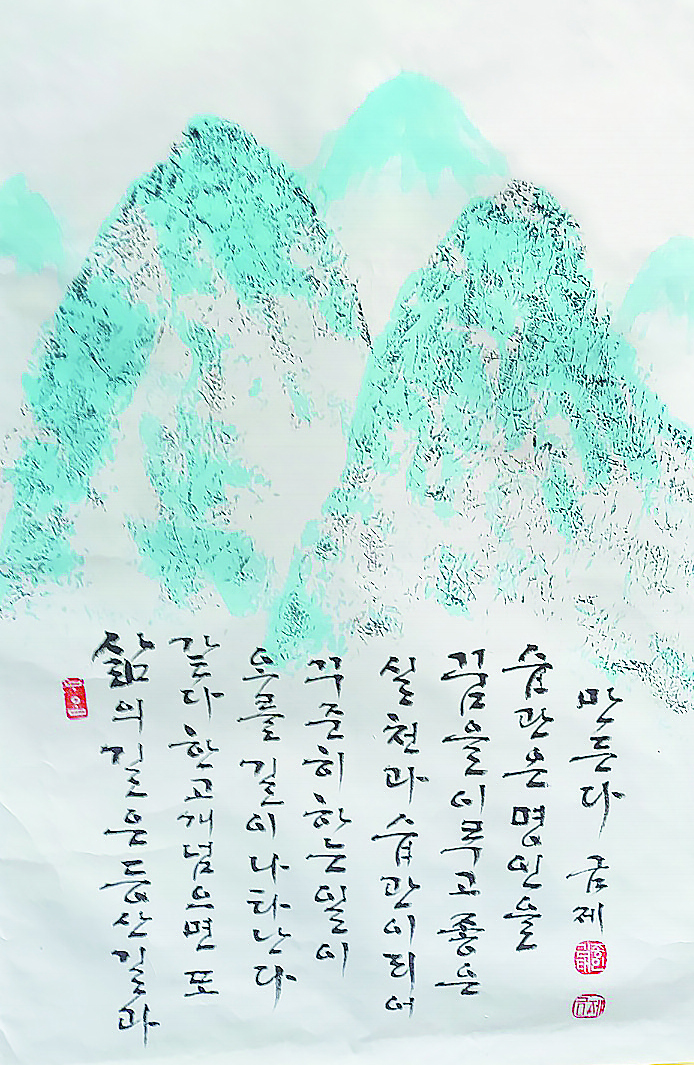 삶의 길은 등산길과
같다 한고개 넘으면 또
오를 길이 나타난다
꾸준히 하는 일이
실천과 습관이 되어
꿈을 이루고 좋은
습관은 명인을
만든다 금제